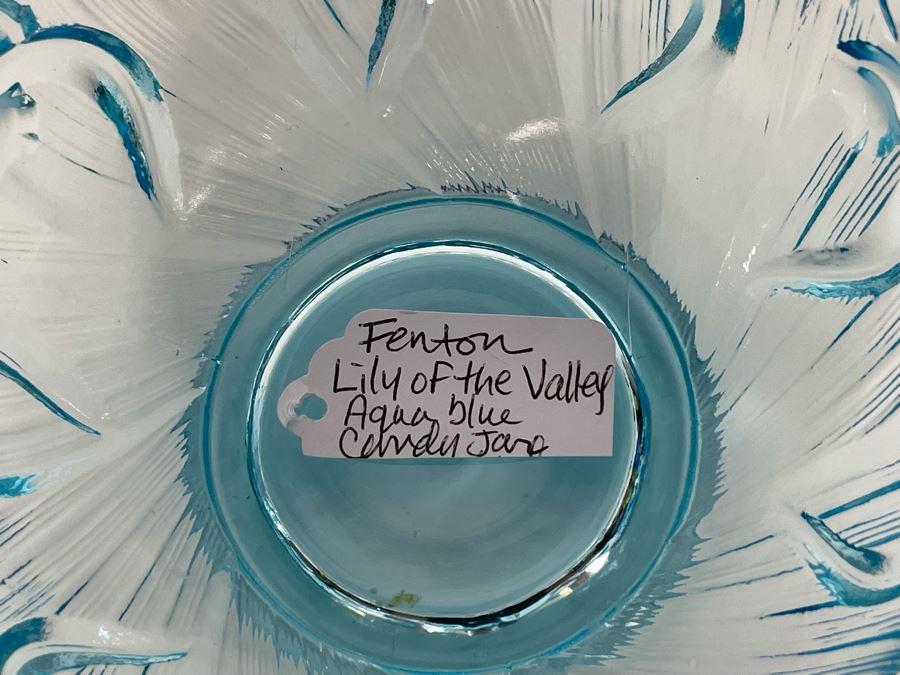 Fenton
Lily of the Valley
Aqua blue
Candy Jar